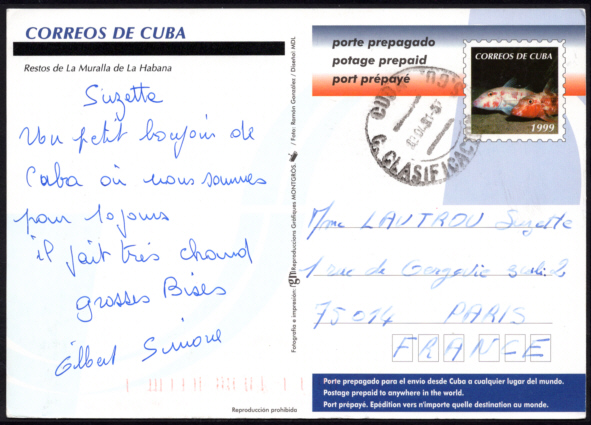 CORREOS DE CUBA
Restos de La Muralla de La Habana
Suzette
Un petit boujour de
Cuba où nous sommes
pour 10 jours
il fait très chaud
grosses Bises
Gilbert Simone
Reproducción prohibida
Fotografía e impresión: Reproduccions Gràfiques MONTGRÒS. / Foto: Ramón González / Diseño: MDL
porte prepagado
potage prepaid
port prépayé
CORREOS DE CUBA
1999
C. CLASIFICAC
Mme LAUTROU Suzette
1 rue de
75014 PARIS
FRANCE
Porte prepagado para el envío desde Cuba a cualquier lugar del mundo.
Postage prepaid to anywhere in the world.
Port prépayé. Epédition vers n'importe quelle destination au monde.